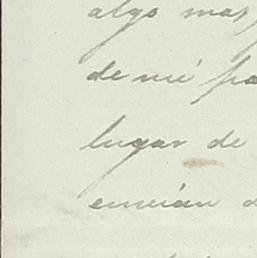 algo mas,
de mi pa
lugar de
envian d